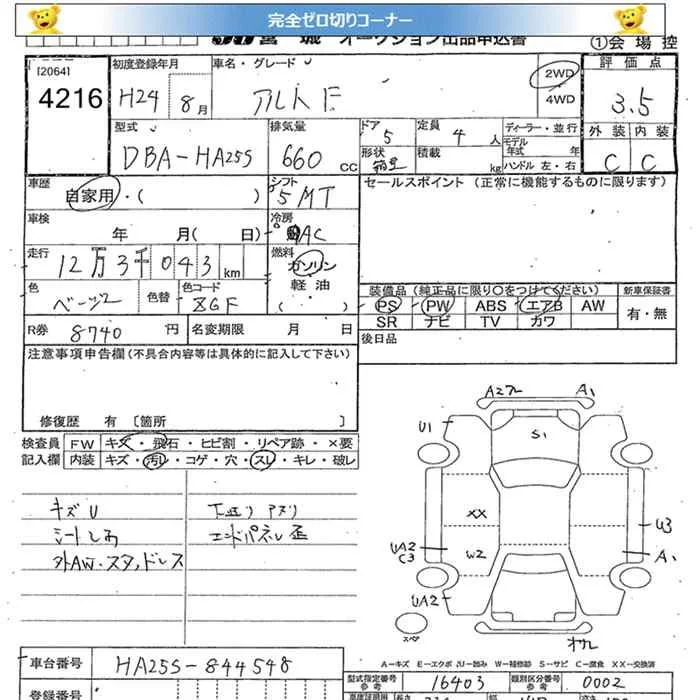 完全ゼロ切りコーナー
宮城 オークション出品申込書
①会場控
[2064]
4216
初度登録年月
H24 8月
車名・グレード
アルト F
2WD
4WD
評価点
3.5
外装 内装
C C
型式
DBA-HA25S
排気量
660 cc
ドア
5
定員
4 人
形状
積載
kg
ディーラー・並行
モデル年式 年
ハンドル 左・右
車歴
自家用・( )
シフト
5MT
セールスポイント (正常に機能するものに限ります)
車検
年 月( 日)
冷房
AC
走行
12万3千043km
燃料
ガソリン
軽油
( )
色
ベージュ
色替
色コード
ZGF
装備品 (純正品に限り○をつけてください)
新車保証書
PS PW ABS エアB AW
SR ナビ TV カワ
有・無
R券 8740 円
名変期限 月 日
後日品
注意事項申告欄(不具合内容等は具体的に記入して下さい)
修復歴 有 [箇所 ]
検査員 FW キズ・飛石・ヒビ割・リペア跡・×要
記入欄 内装 キズ・汚レ・コゲ・穴・スレ・キレ・破レ
キズU
シートしみ
外AW・スタッドレス
下廻りアズリ
エンドパネル歪
A2フレ
A1
U1
S1
XX
U3
UA2
C3
W2
A1
UA2
スペア
A－キズ E－エクボ U－凹み W－補修跡 S－サビ C－腐食 XX－交換済
車台番号
HA25S-844548
型式指定番号
参考
16403
類別区分番号
参考
0002
登録番号